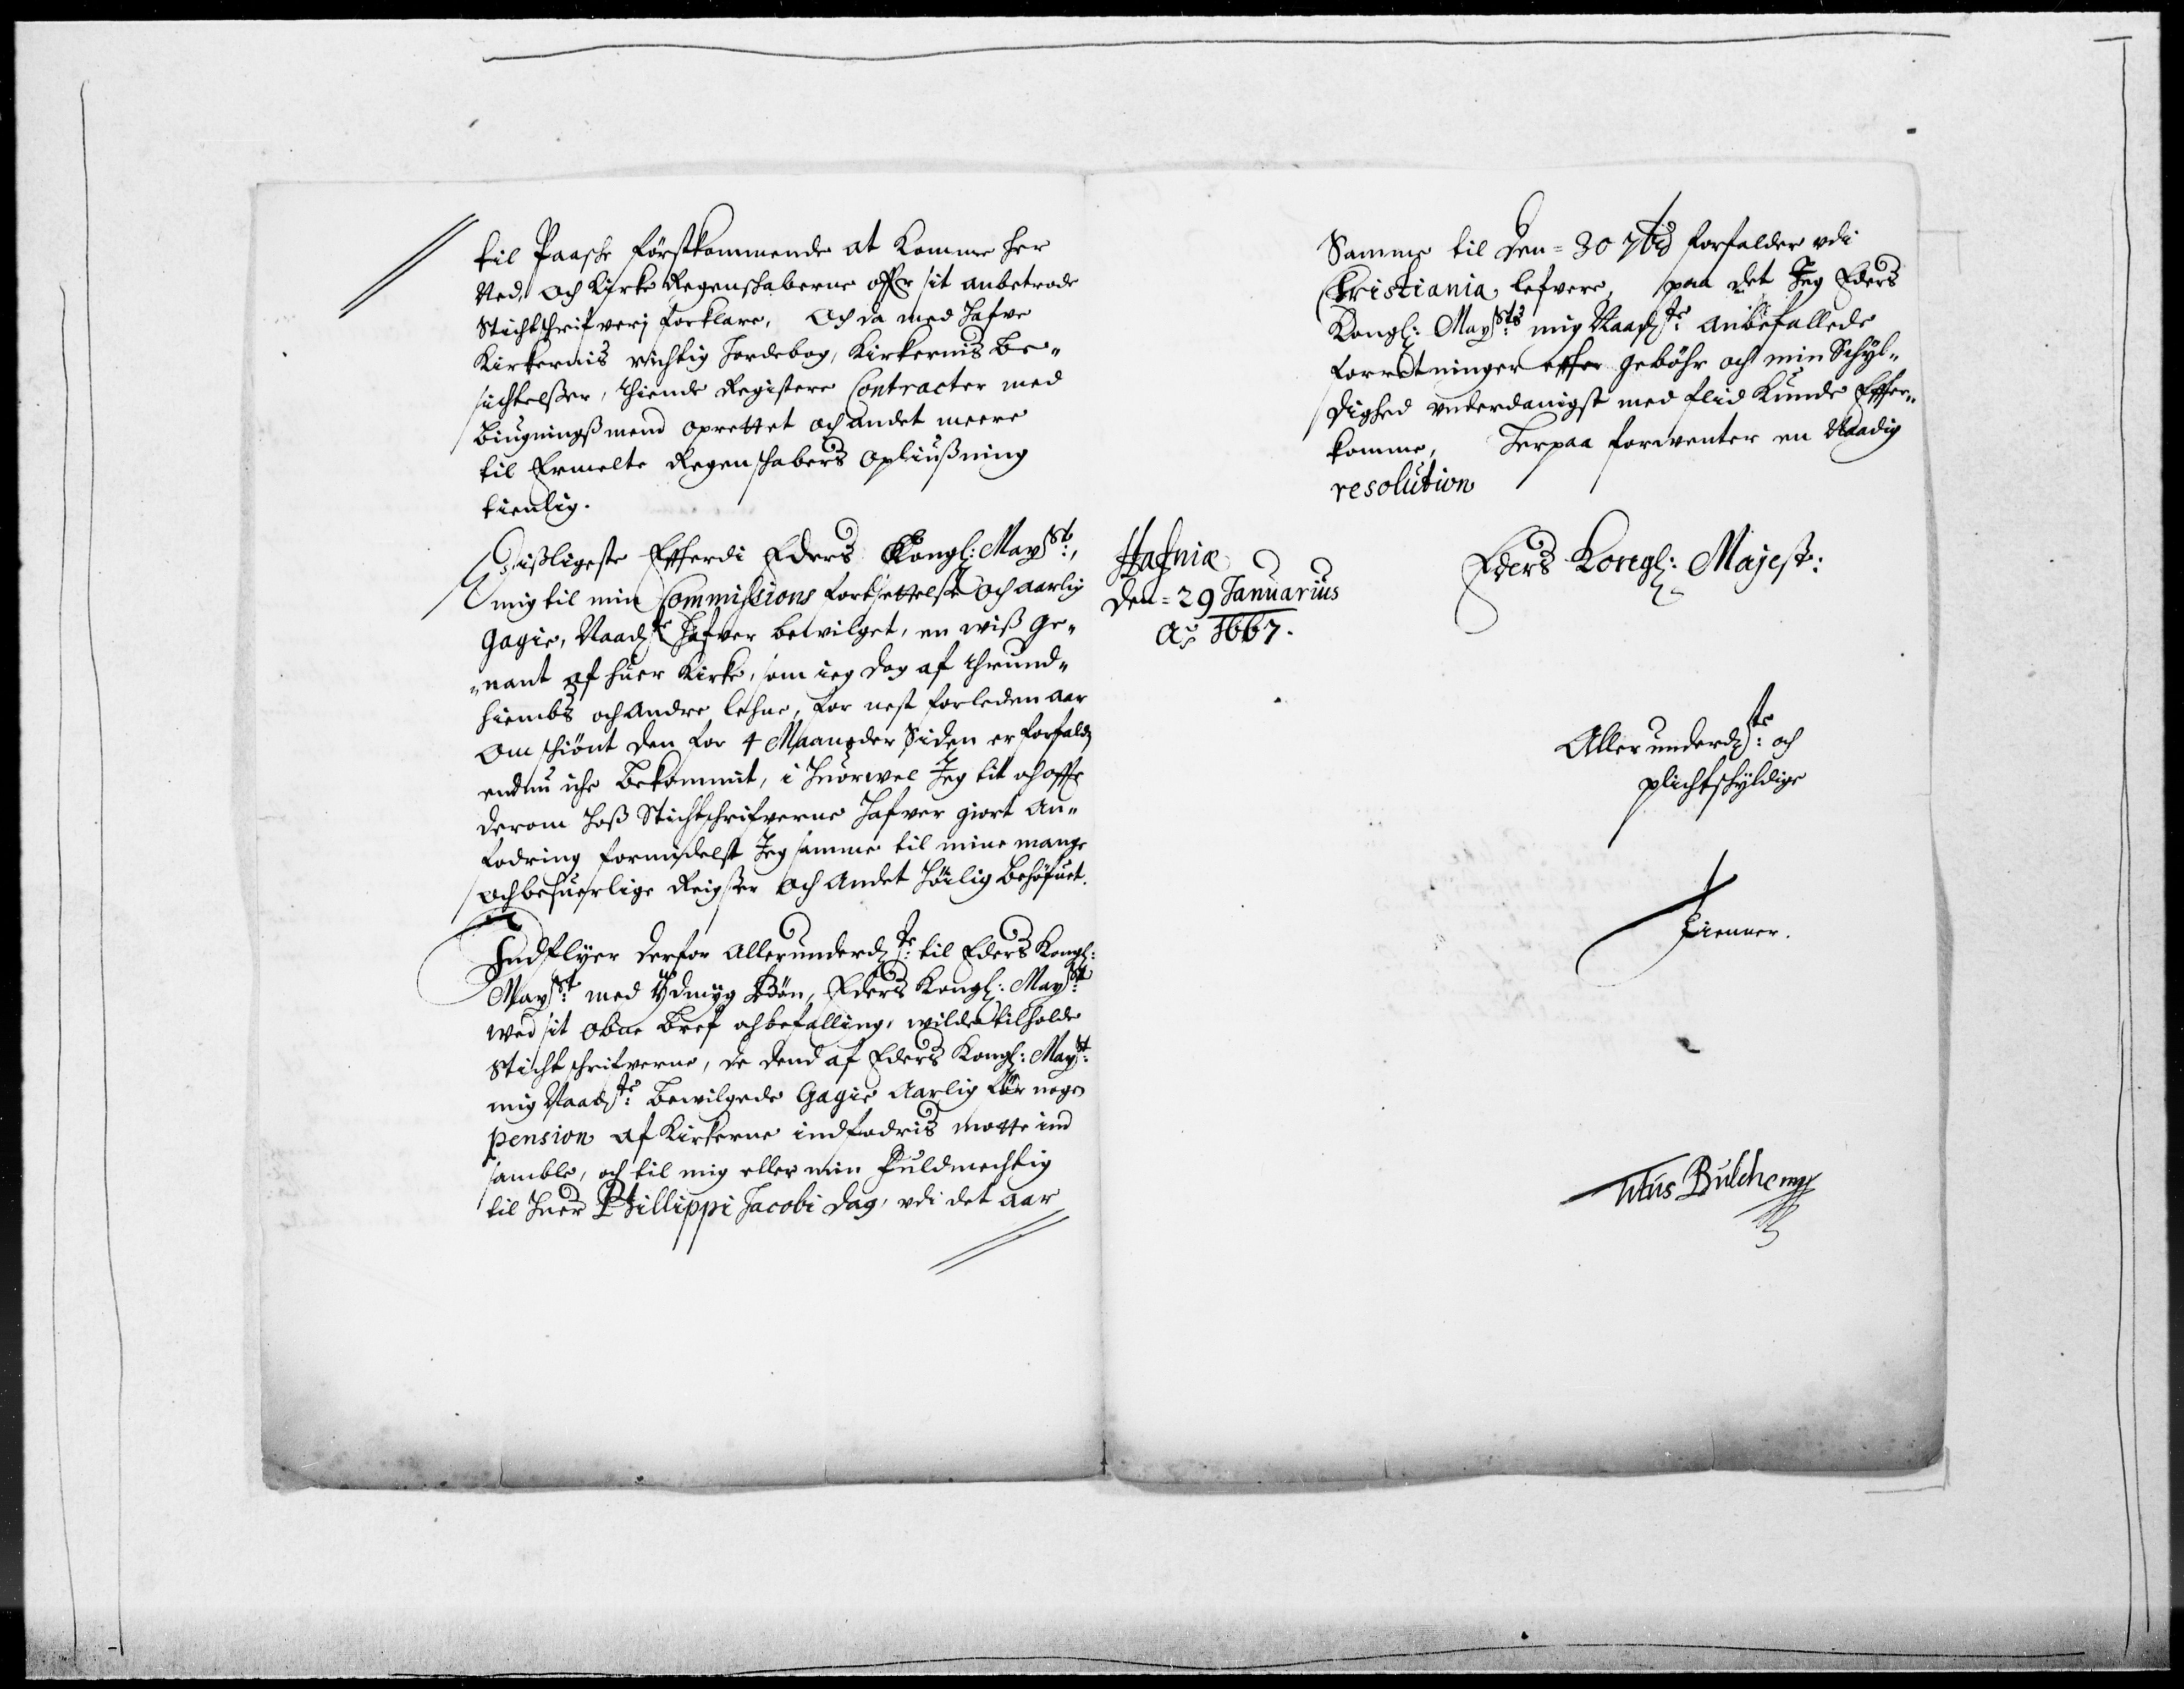 til Paaske förstkommende at komme her
Ned, och Kirke Regenskaberne effter sit anbetrode
Stichtschrifverj forklare, Och da med hafve
Kirkernis richtig Jordebog, Kirkernis Be-
sichtelsser, thiende Registere Contracter med
Biugningsmend oprettet och andet meere
til Ermelte Regenschabers Opliusning
tienlig.
Visligeste Efterdi Eders Kongl: Mayst:,
mig til min Commissions fortsettelse och aarlig
Gagie, Naadste hafver bevilget, en wiss ge-
nant af huer Kirke, som ieg dog af thrund-
hiembs och andre lehne, for nest forleden aar
om schiönt den for 4 Maaneder Siden er forfalden
endnu iche bekommit, i huorvel Jeg tit och offte
derom hoss Stichtschrifverne hafver giort An-
fodring formidelst Jeg samme til mine mange
och besuerlige Reigser och Andet höilig behöfuet.
Indflyer derfor Allerunderdste: til Eders Kongl:
Mayst: med Ydmyg Bön, Eders Kongl: Mayst:
wed sit obne bref och befalling, wilde tilholde
Stichtschrifverne, de dend af Eders Kongl: Mayst:
mig Naadste: bewilgede Gagie Aarlig för nogen
pension af Kirkerne indfodris motte ind
samble, och til mig eller min Fuldmechtig
til huer Phillippi Jacobi dag, udi det aar
Samme til den = 30 7bris forfalder udi
Christiania lefvere, paa det Jeg Eders
Kongl: Maysts: mig Naadste: Anbefallede
forretninger effter geböhr och min Schyl-
dighed underdanigst med flid kunde Effter-
komme, herpaa forwenter en Naadig
resolution
Hafniæ
den = 29 Januarius
Ao 1667.
Eders Kongl: Majest:
Allerunderdste: och
plichtschyldige
tienner.
Titus Bulchemgr